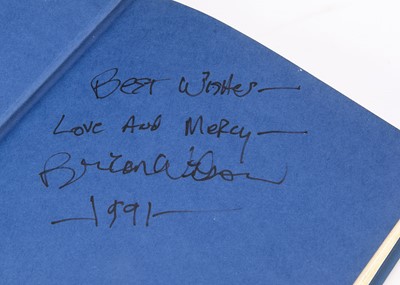 Best Wishes—
Love And Mercy—
Brian Wilson
—1991—